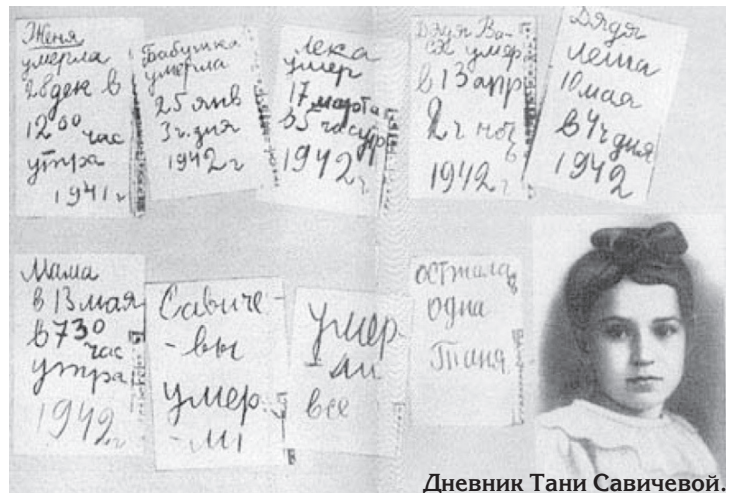 Женя
умерла
28 дек в
12 00 час
утра
1941 г
Бабушка
умерла
25 янв
3 ч. дня
1942 г
Лека
умер
17 марта
в 5 час утр
1942 г.
Дядя Ва-
ся умер
в 13 апр
2 ч ноч
ь
1942 г
Дядя
Леша
10 мая
в 4 ч дня
1942
Мама
в 13 мая
в 7 30
час
утра
1942 г
Савиче-
-вы
умер-
-ли
умер
-ли
все
осталась
одна
Таня
Дневник Тани Савичевой.